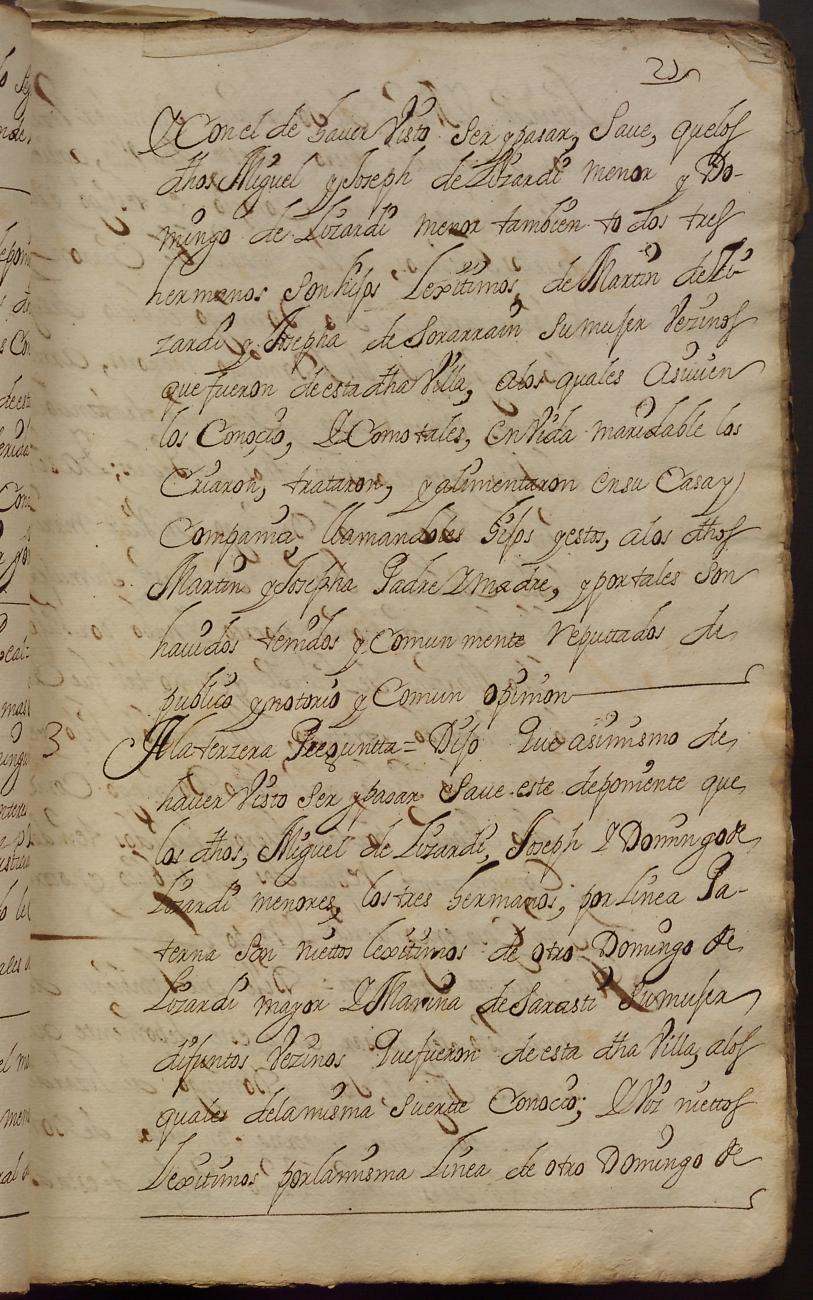 21
Y Con el de haver Visto Ser y pasar, Save, quelos
dhos Miguel y Joseph de Lizardi menor y Do-
mingo de Lizardi menor tambien todos tres
hermanos Son hijos Lexitimos, de Martin de Li-
zardi y Josepha de Sorarrain Sumujer Vezinos
que fueron de esta dha Villa, alos quales Asiuien
los Conoçio, Y Como tales, en Vida maridable los
Criaron, trataron, y alimentaron ensu Casa y
Compania, llamandoles hijos y estos, alos dhos
Martin y Josepha Padre Y madre, y por tales Son
hauidos tenidos y Comun mente Reputtados de
publico y notorio y Comun opinion
3 Ala terzera Preguntta = Dijo Que asimismo de
haver Visto Ser y pasar Saue este deponiente que
los dhos, Miguel de Lizardi, Joseph Y Domingo de
Lizardi menores, los tres hermanos, por Linea Pa-
terna Son niettos lexitimos de otro Domingo de
Lizardi mayor Y Marina de Sarasti Sumujer
difuntos Vezinos Que fueron de esta dha Villa, alos
quales dela misma Suertte Conocio; Y Viz niettos
Lexitimos por la misma Linea de otro Domingo de